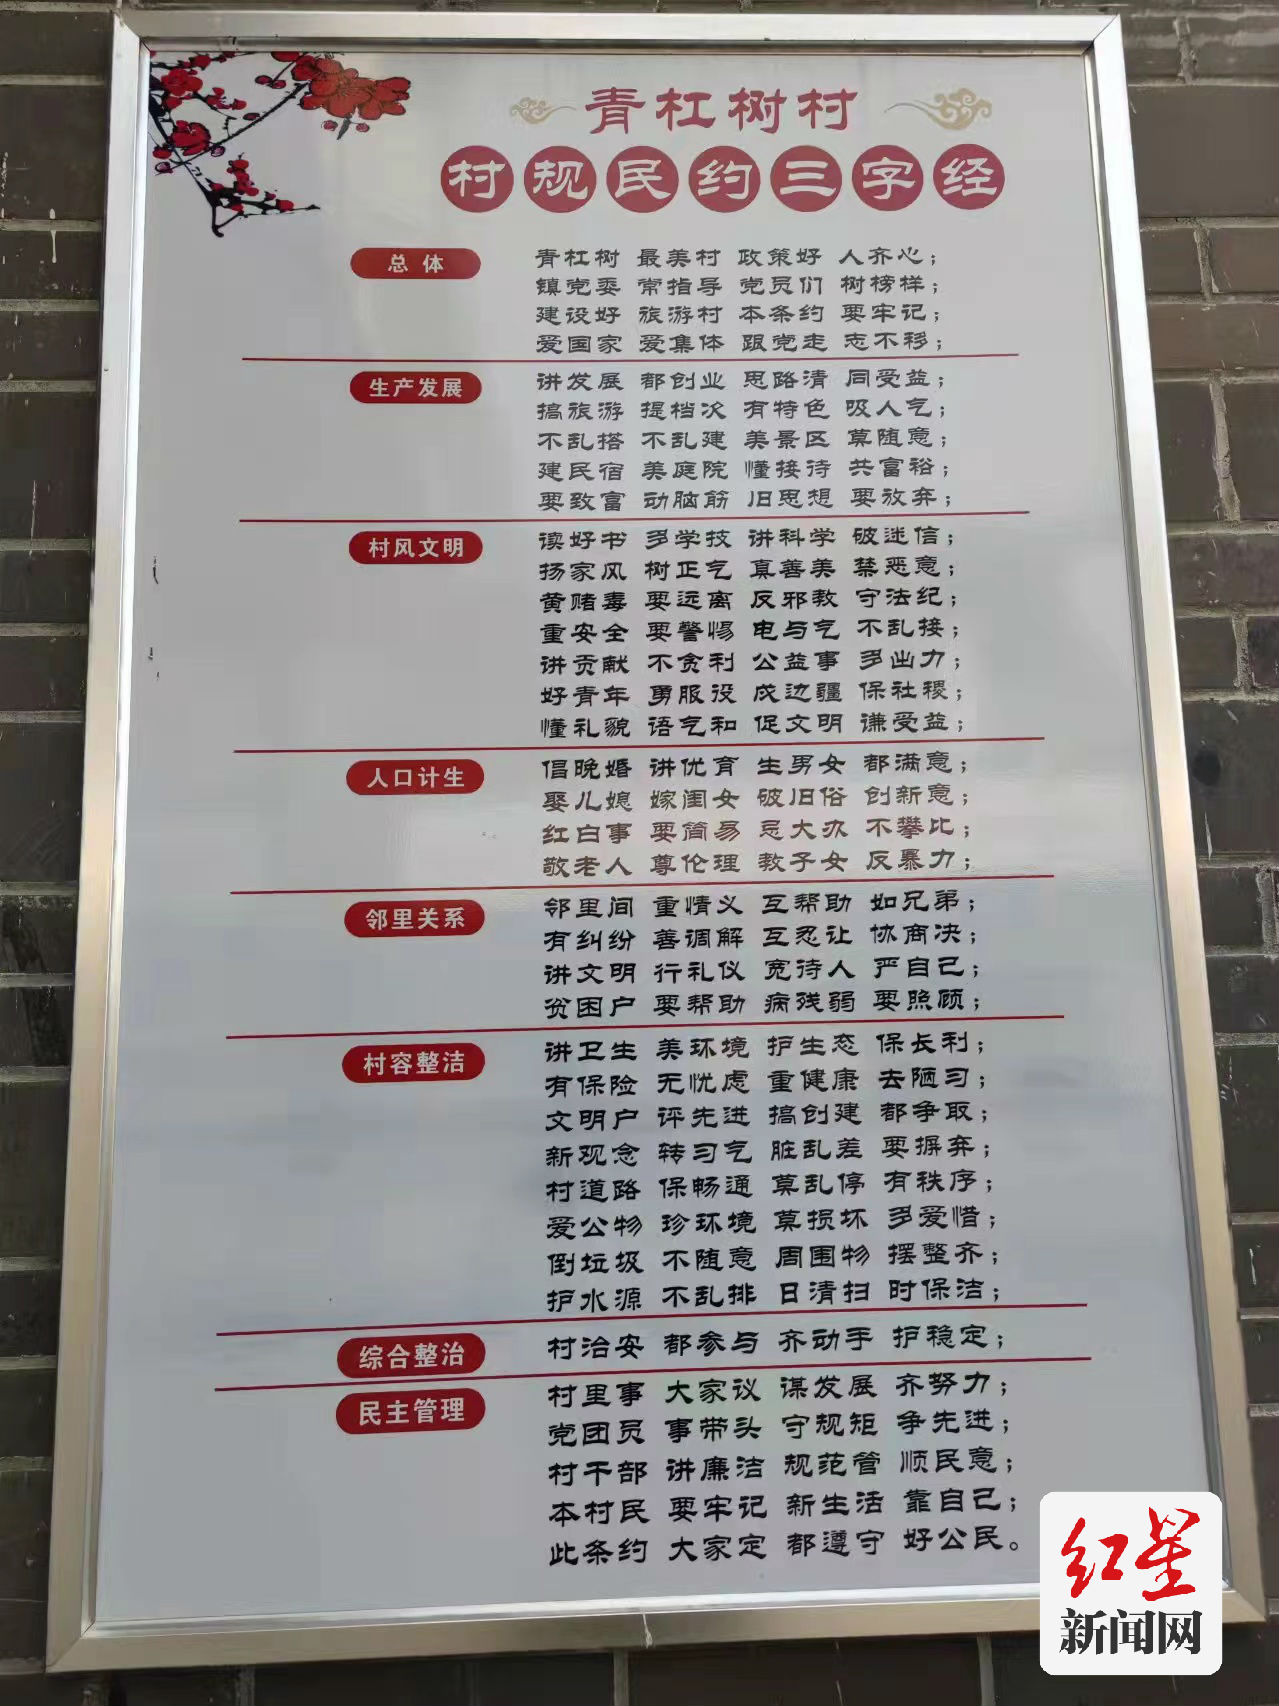 青杠树村
村规民约三字经
总体
青杠树 最美村 政策好 人齐心；
镇党委 常指导 党员们 树榜样；
建设好 旅游村 本条约 要牢记；
爱国家 爱集体 跟党走 志不移；
生产发展
讲发展 都创业 思路清 同受益；
搞旅游 提档次 有特色 吸人气；
不乱搭 不乱建 美景区 莫随意；
建民宿 美庭院 懂接待 共富裕；
要致富 动脑筋 旧思想 要放弃；
村风文明
读好书 多学技 讲科学 破迷信；
扬家风 树正气 真善美 禁恶意；
黄赌毒 要远离 反邪教 守法纪；
重安全 要警惕 电与气 不乱接；
讲贡献 不贪利 公益事 多出力；
好青年 勇服役 戍边疆 保社稷；
懂礼貌 语气和 促文明 谦受益；
人口计生
倡晚婚 讲优育 生男女 都满意；
娶儿媳 嫁闺女 破旧俗 创新意；
红白事 要简易 忌大办 不攀比；
敬老人 尊伦理 教子女 反暴力；
邻里关系
邻里间 重情义 互帮助 如兄弟；
有纠纷 善调解 互忍让 协商决；
讲文明 行礼仪 宽待人 严自己；
贫困户 要帮助 病残弱 要照顾；
村容整洁
讲卫生 美环境 护生态 保长利；
有保险 无忧虑 重健康 去陋习；
文明户 评先进 搞创建 都争取；
新观念 转习气 脏乱差 要摒弃；
村道路 保畅通 莫乱停 有秩序；
爱公物 珍环境 莫损坏 多爱惜；
倒垃圾 不随意 周围物 摆整齐；
护水源 不乱排 日清扫 时保洁；
综合整治
村治安 都参与 齐动手 护稳定；
民主管理
村里事 大家议 谋发展 齐努力；
党团员 事带头 守规矩 争先进；
村干部 讲廉洁 规范管 顺民意；
本村民 要牢记 新生活 靠自己；
此条约 大家定 都遵守 好公民。
红星
新闻网